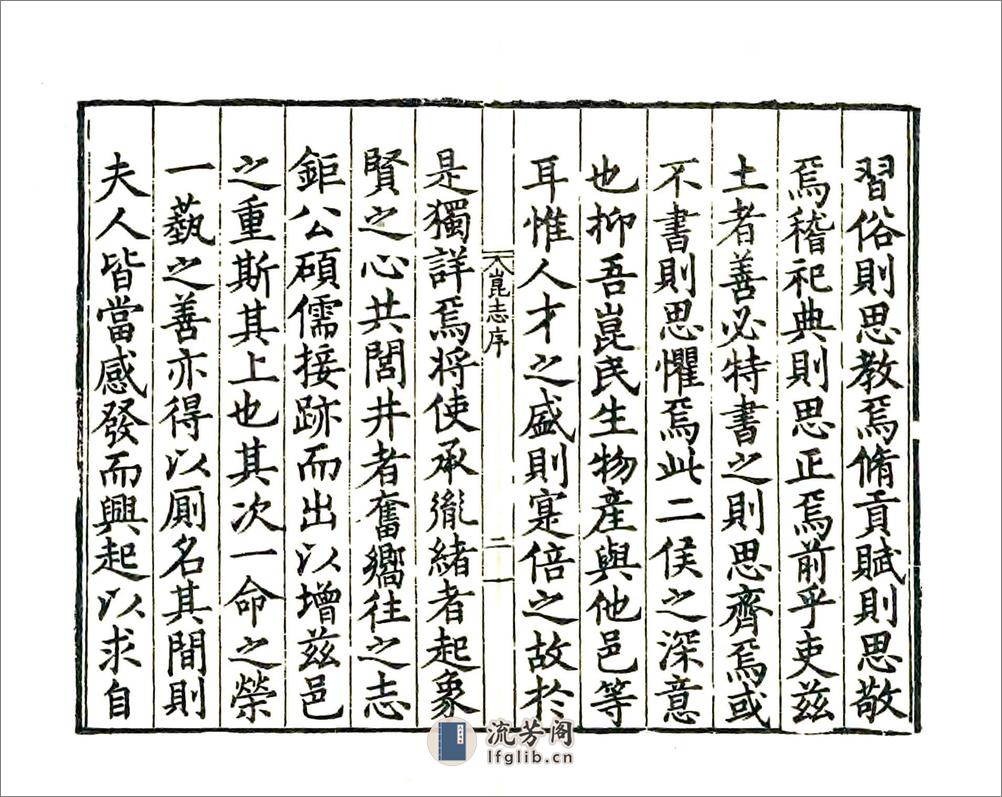 習俗則思教焉脩貢賦則思敬
焉稽祀典則思正焉前乎吏兹
土者善必特書之則思齊焉或
不書則思懼焉此二侯之深意
也抑吾崑民生物產與他邑等
耳惟人才之盛則寔倍之故於
崑志序
二
是獨詳焉將使承胤緒者起象
賢之心共閭井者奮嚮往之志
鉅公碩儒接跡而出以增兹邑
之重斯其上也其次一命之榮
一藝之善亦得以厠名其間則
夫人皆當感發而興起以求自
流芳阁
lfglib.cn